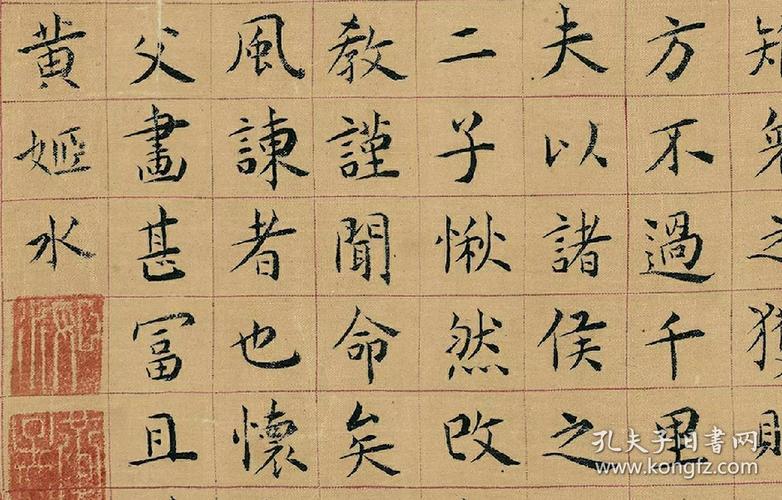 之
方不過千里
夫以諸侯之
二子愀然改
教謹聞命矣
風諫者也懷
父畫甚富且
黄姬水
孔夫子旧書网
www.kongfz.com